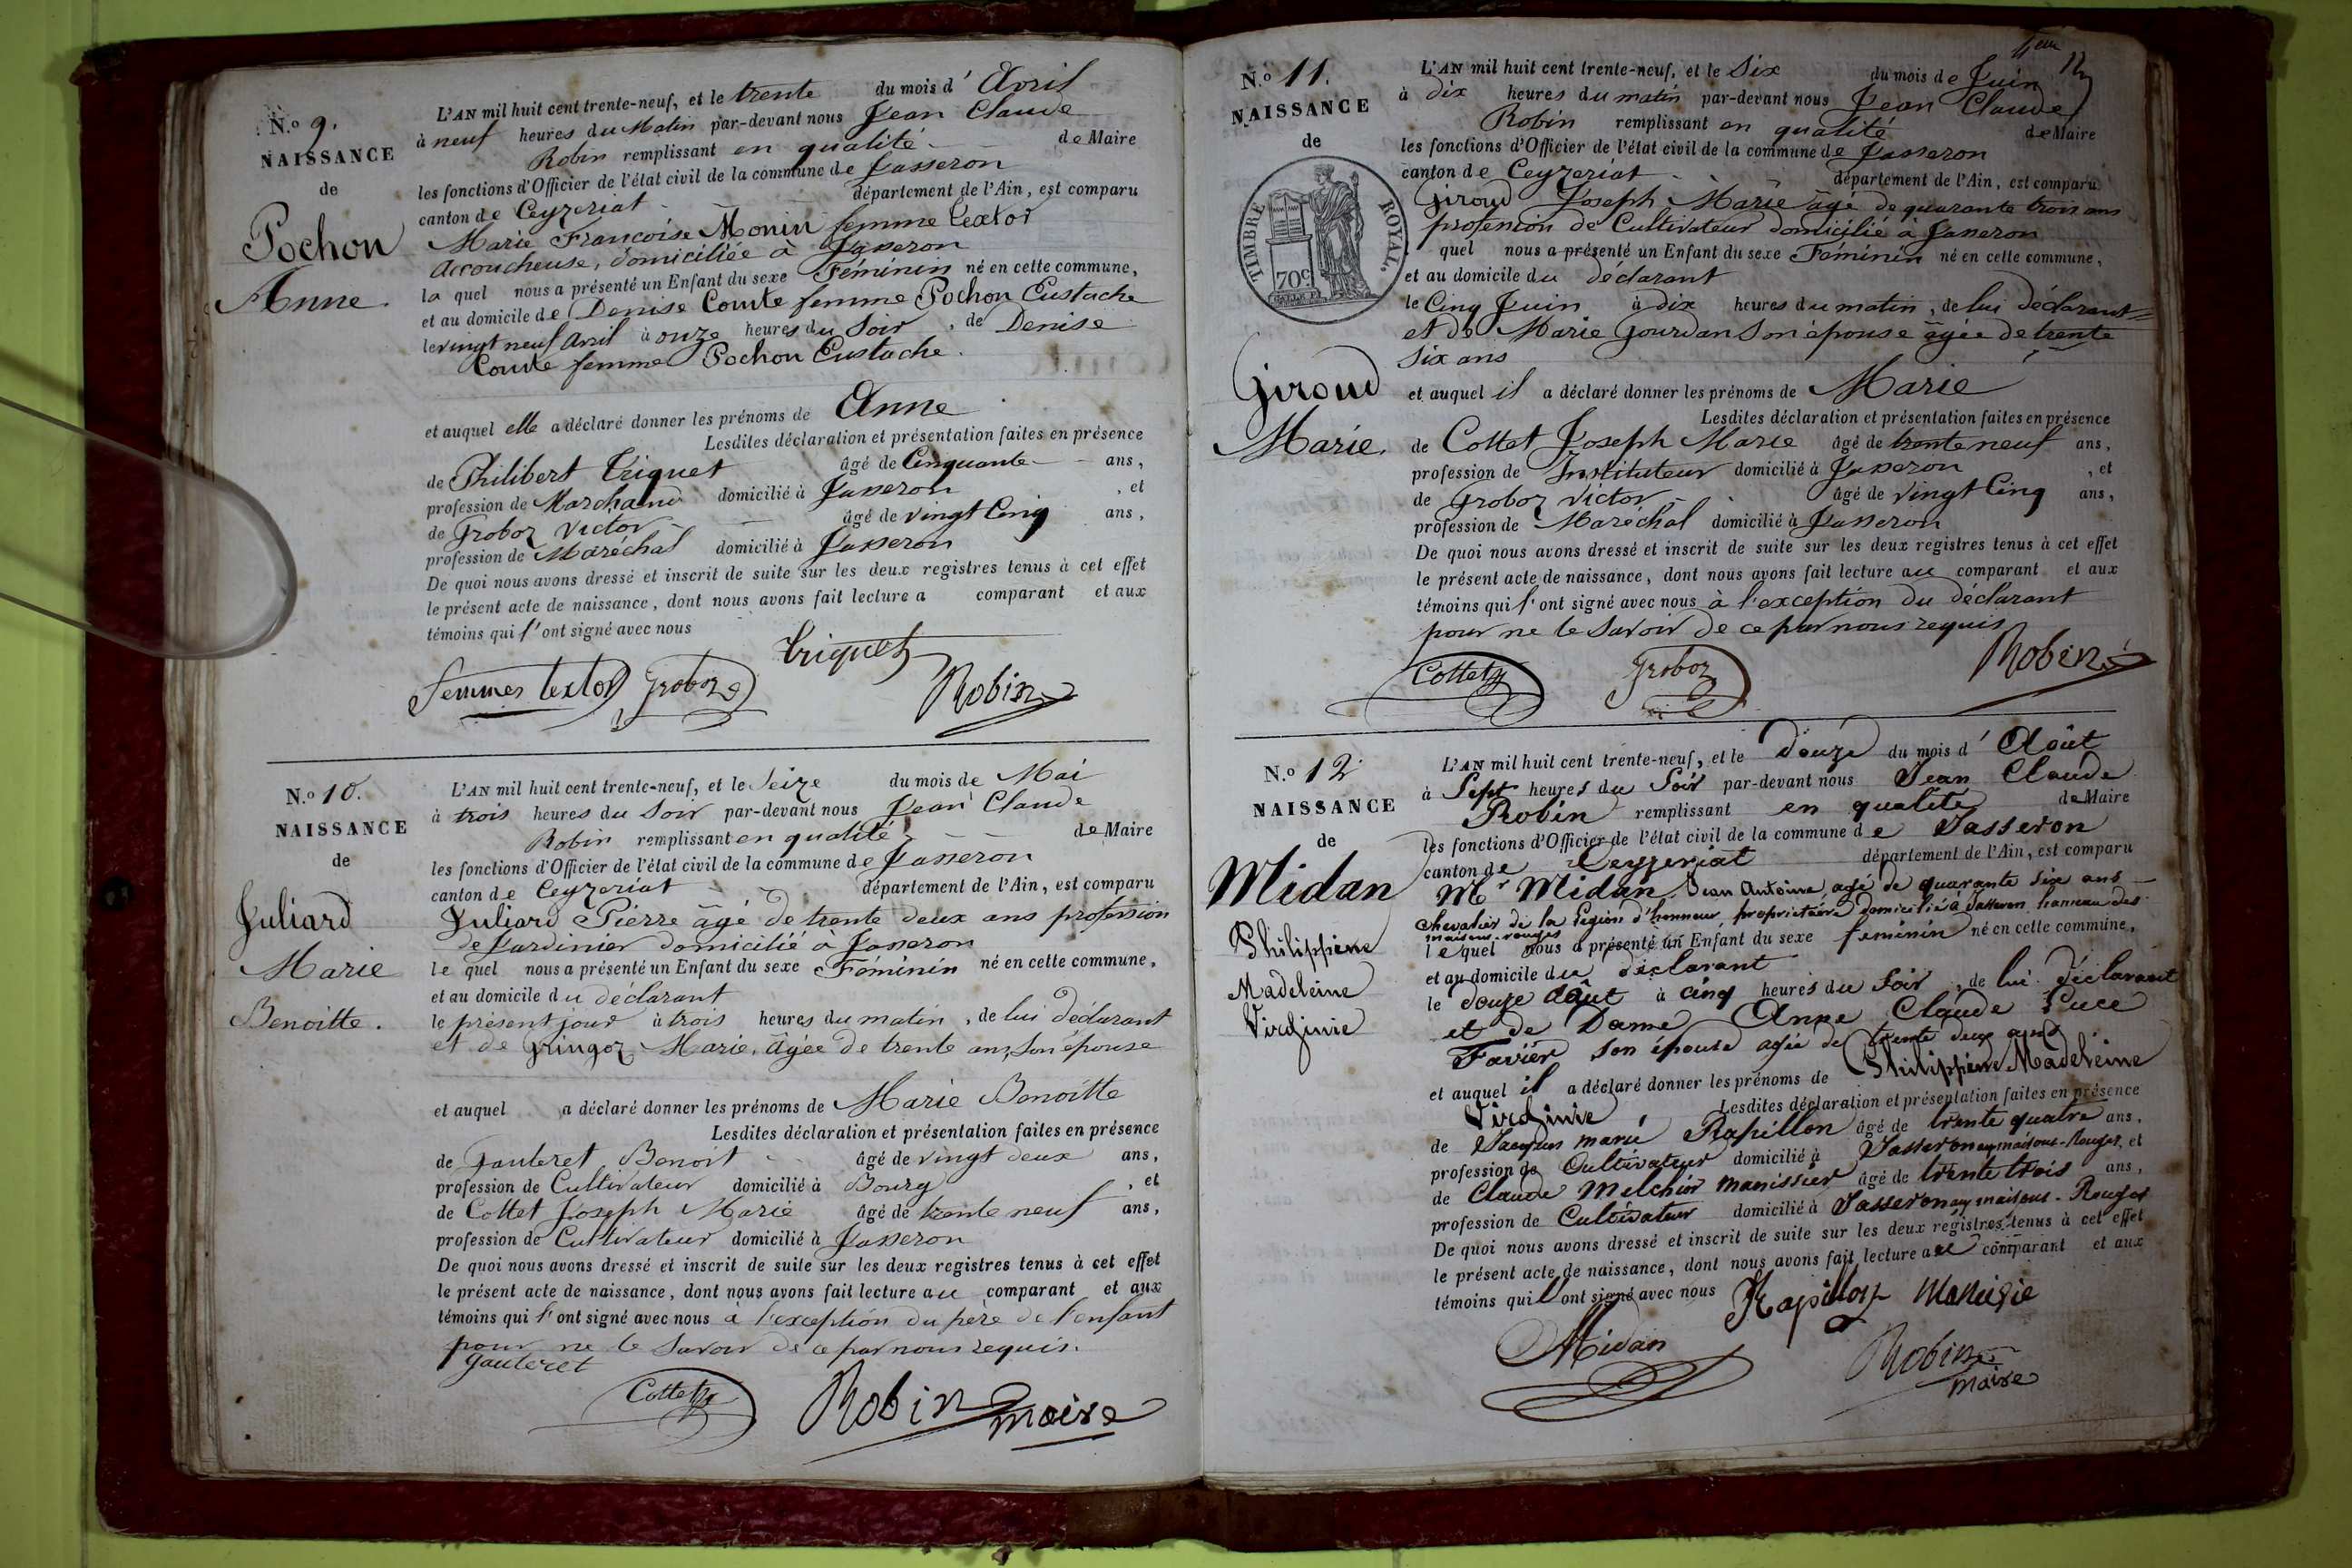 N.o 9.
NAISSANCE
de
Pochon
Anne.
L'AN mil huit cent trente-neuf, et le trente du mois d' Avril
à neuf heures du Matin par-devant nous Jean Claude
Robin remplissant en qualité de Maire
les fonctions d'Officier de l'état civil de la commune de Jasseron
canton de Ceyzeriat département de l'Ain, est comparu
Marie Francoise Monin femme textor
accoucheuse, domiciliée à Jasseron
la quel nous a présenté un Enfant du sexe Féminin né en cette commune,
et au domicile de Denise Comte femme Pochon Eustache
le vingt neuf Avril à onze heures du Soir, de Denise
Comte femme Pochon Eustache.
et auquel elle a déclaré donner les prénoms de Anne
Lesdites déclaration et présentation faites en présence
de Philibert Triquet âgé de Cinquante ans,
profession de Marchand domicilié à Jasseron, et
de Groboz Victor âgé de vingt Cinq ans,
profession de Maréchal domicilié à Jasseron
De quoi nous avons dressé et inscrit de suite sur les deux registres tenus à cet effet
le présent acte de naissance, dont nous avons fait lecture a comparant et aux
témoins qui l'ont signé avec nous
triquet
femmes textor Groboz Robin
N.o 10.
NAISSANCE
de
Juliard
Marie
Benoitte.
L'AN mil huit cent trente-neuf, et le Seize du mois de Mai
à trois heures du Soir par-devant nous Jean Claude
Robin remplissant en qualité de Maire
les fonctions d'Officier de l'état civil de la commune de Jasseron
canton de Ceyzeriat département de l'Ain, est comparu
Juliard Pierre âgé de trente deux ans profession
de Jardinier domicilié à Jasseron
le quel nous a présenté un Enfant du sexe Féminin né en cette commune,
et au domicile du déclarant
le présent jour à trois heures du matin, de lui déclarant
et de Gringoz Marie, âgée de trente ans, son épouse
et auquel a déclaré donner les prénoms de Marie Benoitte
Lesdites déclaration et présentation faites en présence
de Gauteret Benoit âgé de vingt deux ans,
profession de Cultivateur domicilié à Bourg, et
de Cottet Joseph Marie âgé de trente neuf ans,
profession de Cultivateur domicilié à Jasseron
De quoi nous avons dressé et inscrit de suite sur les deux registres tenus à cet effet
le présent acte de naissance, dont nous avons fait lecture au comparant et aux
témoins qui l'ont signé avec nous à l'exception du père de l'enfant
pour ne le Savoir de ce par nous requis.
gauteret
Cottet Robin maire
N.o 11.
NAISSANCE
de
TIMBRE ROYAL.
70c
Giroud
Marie.
L'AN mil huit cent trente-neuf, et le Six du mois de Juin
à dix heures du matin par-devant nous Jean Claude
Robin remplissant en qualité de Maire
les fonctions d'Officier de l'état civil de la commune de Jasseron
canton de Ceyzeriat département de l'Ain, est comparu
Giroud Joseph Marie âgé de quarante trois ans
profession de Cultivateur domicilié à Jasseron
quel nous a présenté un Enfant du sexe Féminin né en cette commune,
et au domicile du déclarant
le Cinq Juin à dix heures du matin, de lui déclarant
et de Marie Gourdan son épouse âgée de trente
six ans
et auquel il a déclaré donner les prénoms de Marie
Lesdites déclaration et présentation faites en présence
de Cottet Joseph Marie âgé de trente neuf ans,
profession de Instituteur domicilié à Jasseron, et
de Groboz Victor âgé de vingt Cinq ans,
profession de Maréchal domicilié à Jasseron
De quoi nous avons dressé et inscrit de suite sur les deux registres tenus à cet effet
le présent acte de naissance, dont nous avons fait lecture au comparant et aux
témoins qui l'ont signé avec nous à l'exception du déclarant
pour ne le Savoir de ce par nous requis
Cottet Groboz Robin
N.o 12
NAISSANCE
de
Midan
Philippine
Madeleine
Virginie
L'AN mil huit cent trente-neuf, et le douze du mois d' Août
à Sept heures du Soir par-devant nous Jean Claude
Robin remplissant en qualité de Maire
les fonctions d'Officier de l'état civil de la commune de Jasseron
canton de Ceyzeriat département de l'Ain, est comparu
Mr Midan Jean Antoine agé de quarante six ans
chevalier de la Légion d'honneur, propriétaire domicilié à Jasseron hameau des
maisons-rouges
lequel nous a présenté un Enfant du sexe feminin né en cette commune,
et au domicile du déclarant
le douze Août à cinq heures du soir, de lui déclarant
et de Dame Anne Claude Luce
Favier son épouse agée de trente deux ans
et auquel il a déclaré donner les prénoms de Philippine Madeleine
Virginie
Lesdites déclaration et présentation faites en présence
de Jacques marie Rapillon âgé de trente quatre ans,
profession de Cultivateur domicilié à Jasseron aux maisons-Rouges, et
de Claude Melchior Manissier âgé de trente trois ans,
profession de Cultivateur domicilié à Jasseron aux maisons-Rouges
De quoi nous avons dressé et inscrit de suite sur les deux régistres tenus à cet effet
le présent acte de naissance, dont nous avons fait lecture au comparant et aux
témoins qui l'ont signé avec nous Rapillon Manisie
Midan Robin
maire